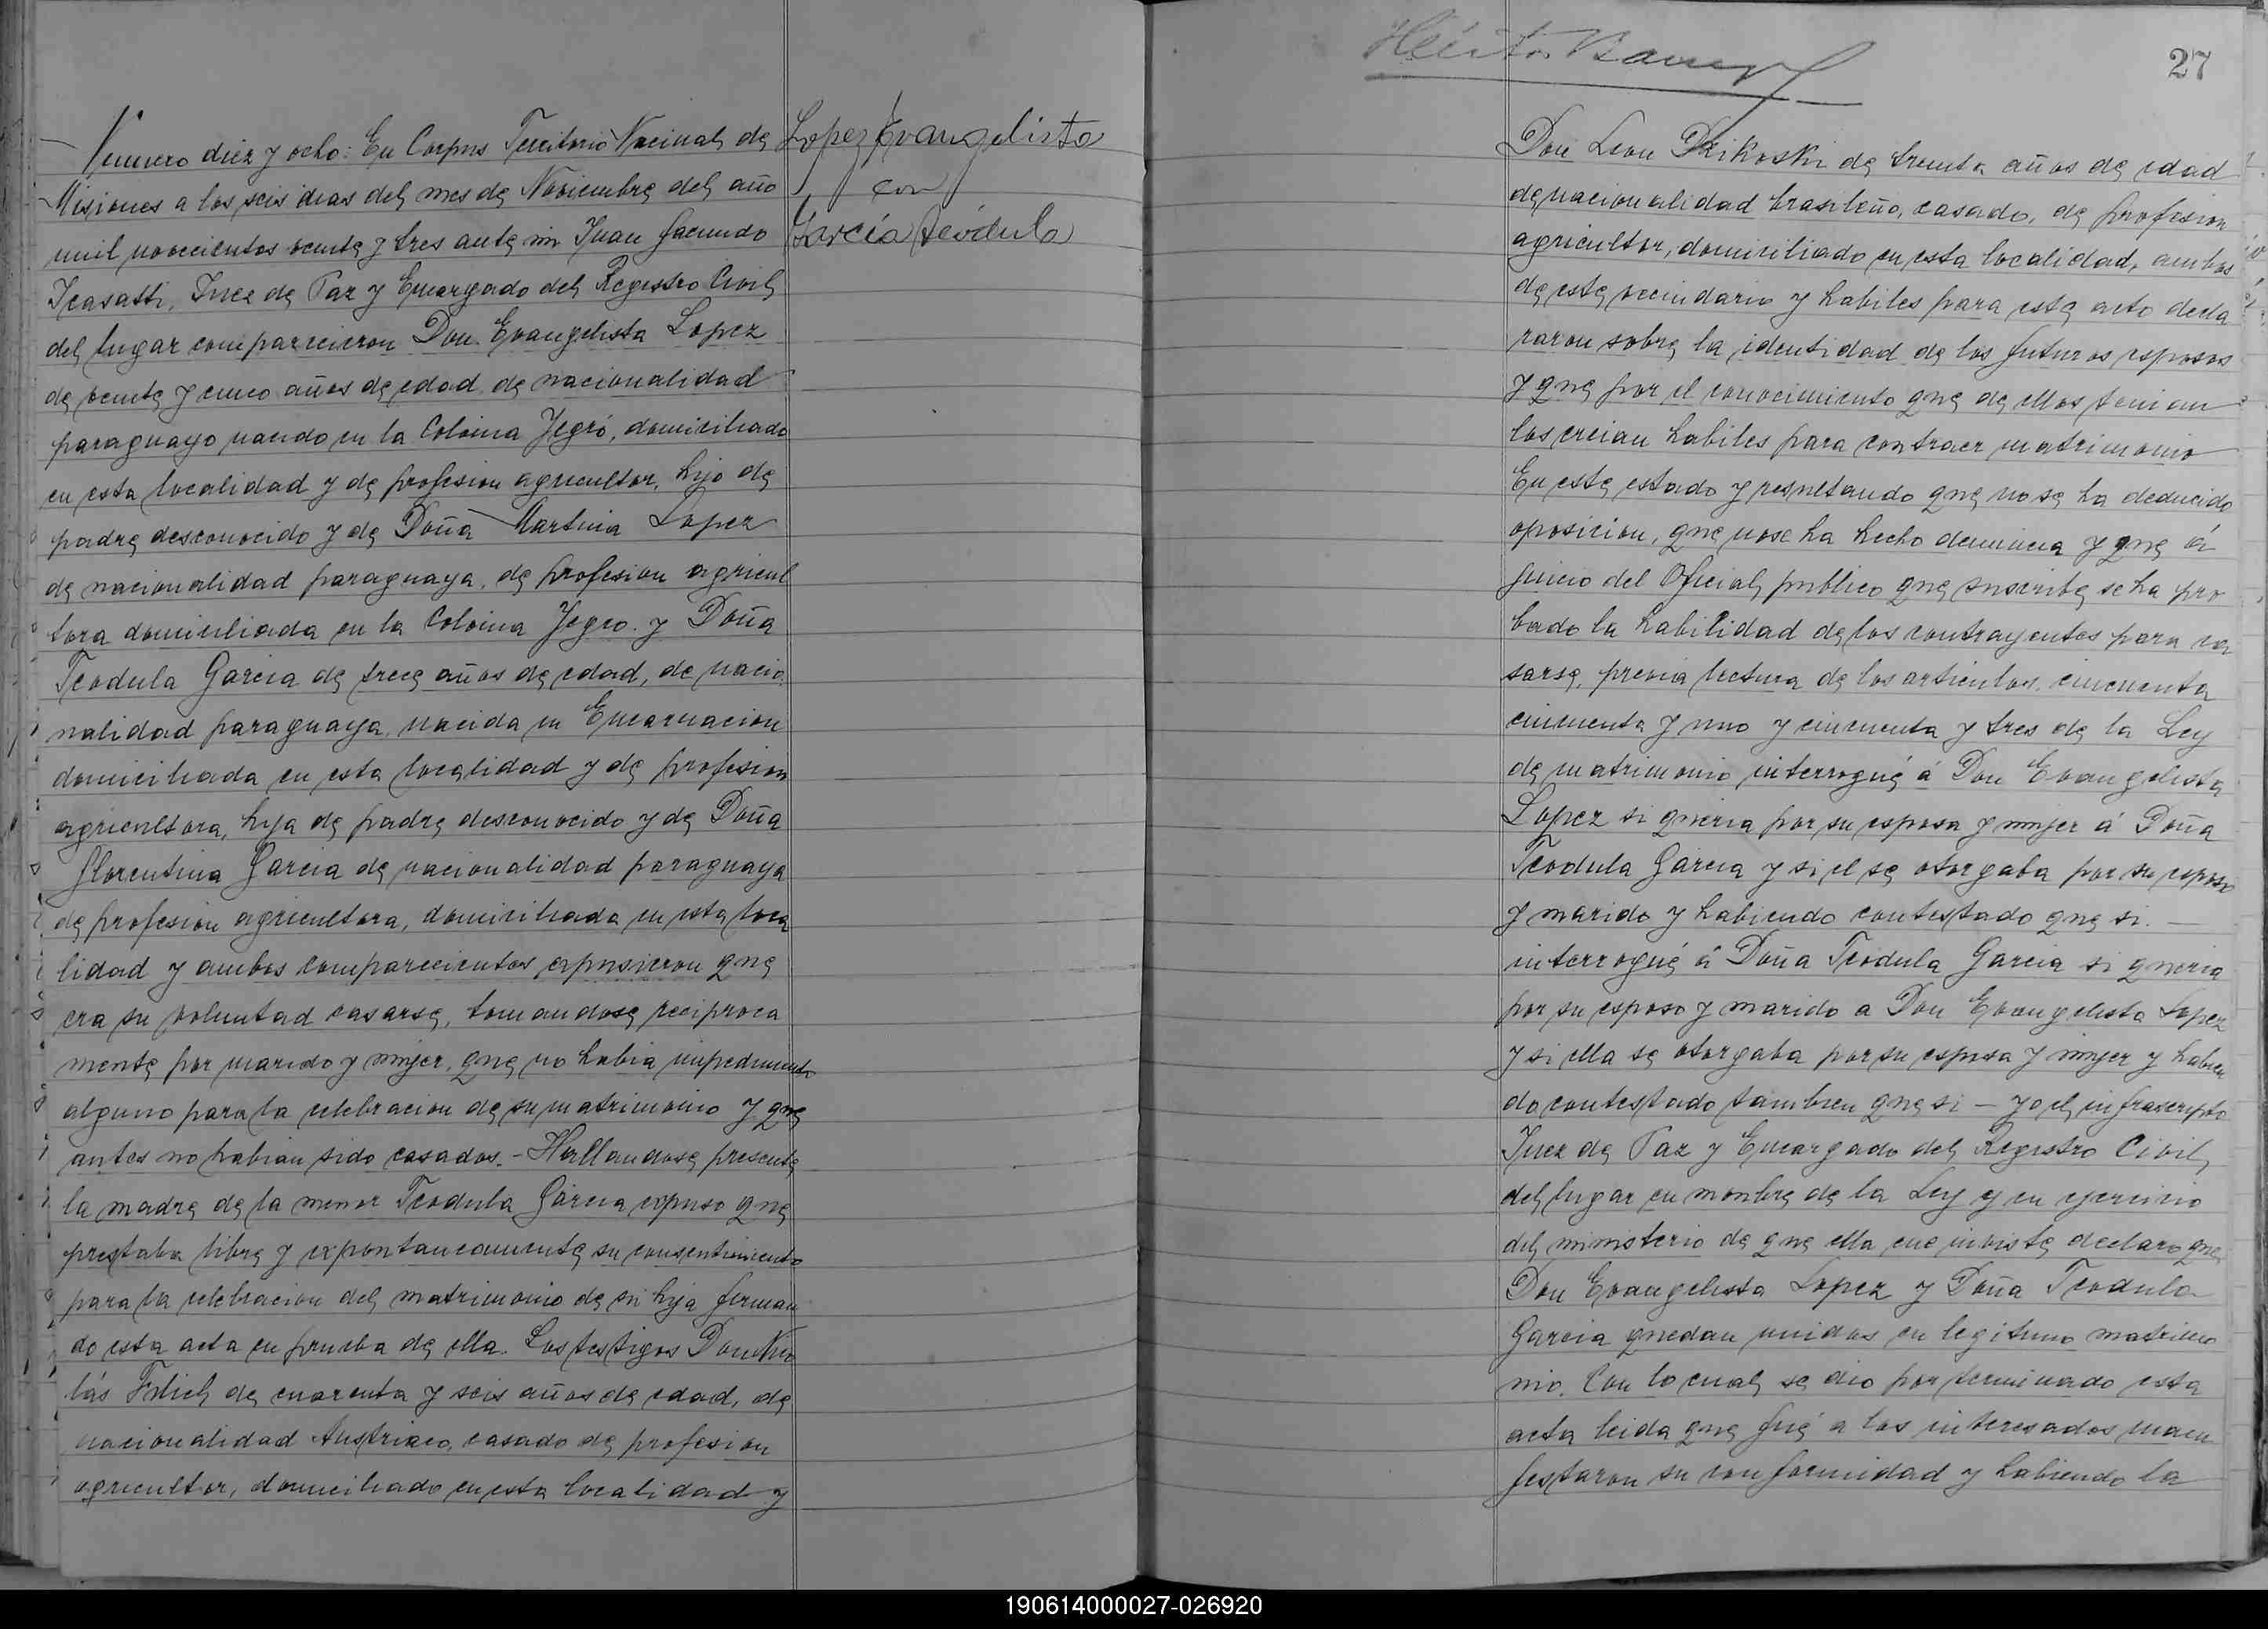 Numero diez y ocho: En Corpus Territorio Nacional de
Misiones a los seis dias del mes de Noviembre del año
mil novecientos veinte y tres ante mi Juan Facundo
Icasatti, Juez de Paz y Encargado del Registro Civil
del lugar comparecieron Don Evangelista Lopez
de veinte y cinco años de edad de nacionalidad
paraguayo nacido en la Colonia Yegró, domiciliado
en esta localidad y de profesion agricultor, hijo de
padre desconocido y de Doña Martina Lopez
de nacionalidad paraguaya, de profesion agricul
tora domiciliada en la Colonia Yegro. y Doña
Teodula Garcia de trece años de edad, de nacio
nalidad paraguaya, nacida en Encarnacion
domiciliada en esta localidad y de profesion
agricultora, hija de padre desconocido y de Doña
Florentina Garcia de nacionalidad paraguaya
de profesion agricultora, domiciliada en esta loca
lidad y ambos comparecientes expusieron que
era su voluntad casarse, tomandose reciproca
mente por marido y mujer, que no habia impedimento
alguno para la celebracion de su matrimonio y que
antes no habian sido casados.- Hallandose presente
la madre de la menor Teodula Garcia expuso que
prestaba libre y expontaneamente su consentimiento
para la celebracion del matrimonio de su hija firman
do esta acta en prueba de ella. Los testigos Don Nico
lás de cuarenta y seis años de edad, de
nacionalidad Austriaco, casado de profesion
agricultor, domiciliado en esta localidad y
Lopez Evangelista
con
García Teódula
27
Don Leon Dzikoski de treinta años de edad
de nacionalidad brasileño, casado, de profesion
agricultor, domiciliado en esta localidad, ambos
de este vecindario y habiles para este acto decla
raron sobre la identidad de los futuros esposos
y que por el conocimiento que de ellos tenian
los creian habiles para contraer matrimonio
En este estado y resultando que no se ha deducido
oposicion, que no se ha hecho denuncia y que á
juicio del Oficial publico que suscribe se ha pro
bado la habilidad de los contrayentes para ca
sarse, previa lectura de los articulos cincuenta
cincuenta y uno y cincuenta y tres de la Ley
de matrimonio interrogué á Don Evangelista
Lopez si queria por su esposa y mujer á Doña
Teodula Garcia y si el se otorgaba por su esposo
y marido y habiendo contestado que si.—
interrogué á Doña Teodula Garcia si queria
por su esposo y marido a Don Evangelista Lopez
y si ella se otorgaba por su esposa y mujer y habien
do contestado tambien que si — yo el infrascripto
Juez de Paz y Encargado del Registro Civil
del lugar en nombre de la Ley y en ejercicio
del ministerio de que ella me inviste declaro que
Don Evangelista Lopez y Doña Teodula
Garcia quedan unidos en legitimo matrimo
nio. Con lo cual se dio por terminado esta
acta leida que fué a los interesados mani
festaron su conformidad y habiendo la
190614000027-026920